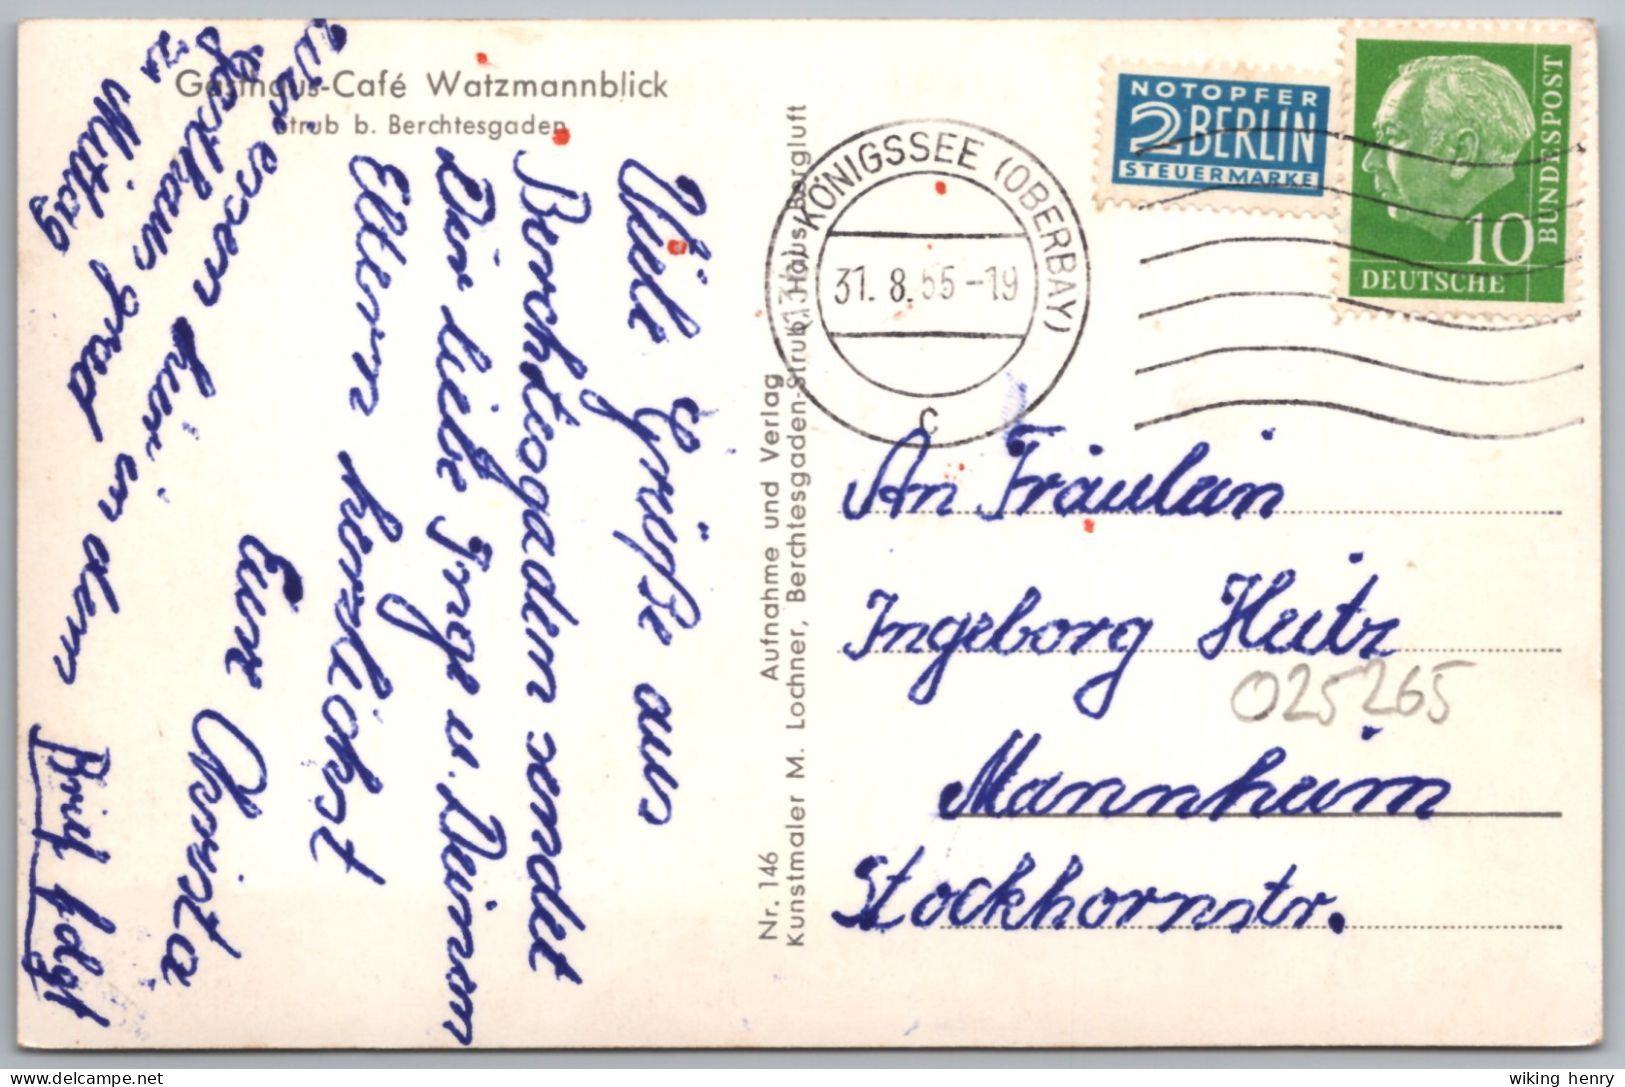 Gasthaus-Café Watzmannblick
Strub b. Berchtesgaden
Viele Grüße aus
Berchtesgaden sendet
Dir liebe Inge u. Deinen
Eltern herzlichst
Eure Christa
Wir essen hier in dem
Gasthaus grad
zu Mittag
Brief folgt
Nr. 146 Aufnahme und Verlag
Kunstmaler M. Lochner, Berchtesgaden-Strub Haus Bergluft
KÖNIGSSEE (OBERBAY)
31. 8. 55-19
c
NOTOPFER
2 BERLIN
STEUERMARKE
10
DEUTSCHE
BUNDESPOST
An Fräulein
Ingeborg Heitz
025265
Mannheim
Stockhornstr.
wiking henry